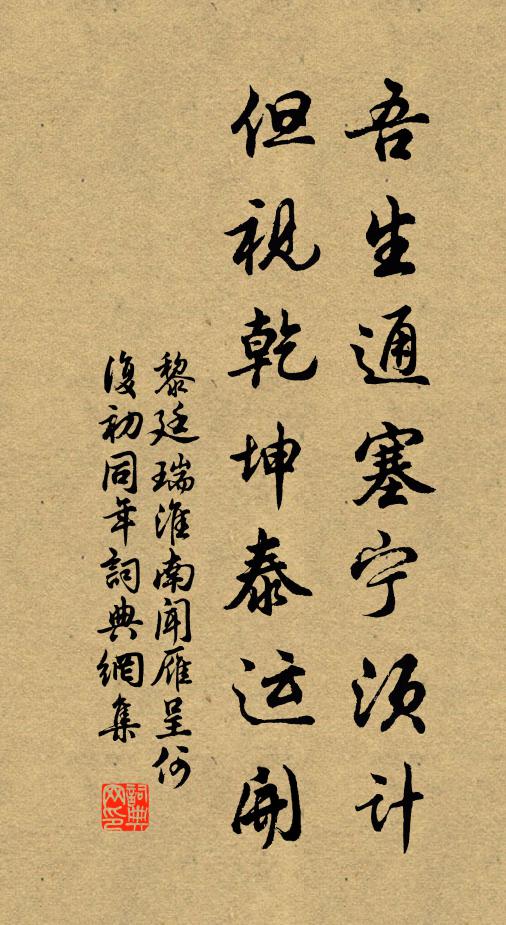 吾生通塞宁须计
但视乾坤泰运开
黎廷瑞淮南闻雁呈何
復初同年詞典網集
詞典网印